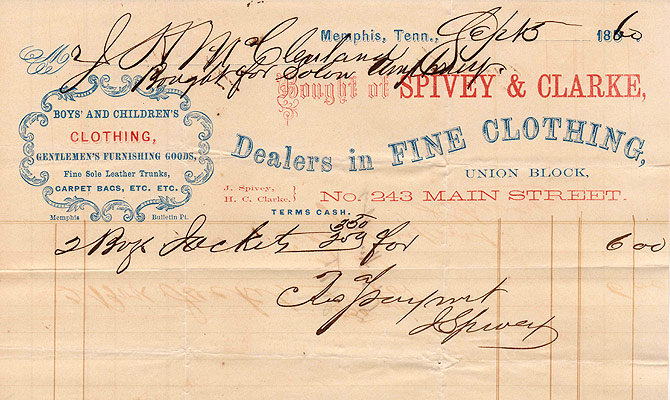 Memphis, Tenn., Sept 5 1860
Mr J. H. McCleuland
Bought for Solon
Bought of SPIVEY & CLARKE,
Dealers in FINE CLOTHING,
UNION BLOCK,
J. Spivey,
H. C. Clarke.
No. 243 MAIN STREET.
TERMS CASH.
BOYS' AND CHILDREN'S
CLOTHING,
GENTLEMEN'S FURNISHING GOODS,
Fine Sole Leather Trunks,
CARPET BAGS, ETC. ETC.
Memphis Bulletin Pt.
2 Boys Jackets 350 250 for 6 00
J Spivey